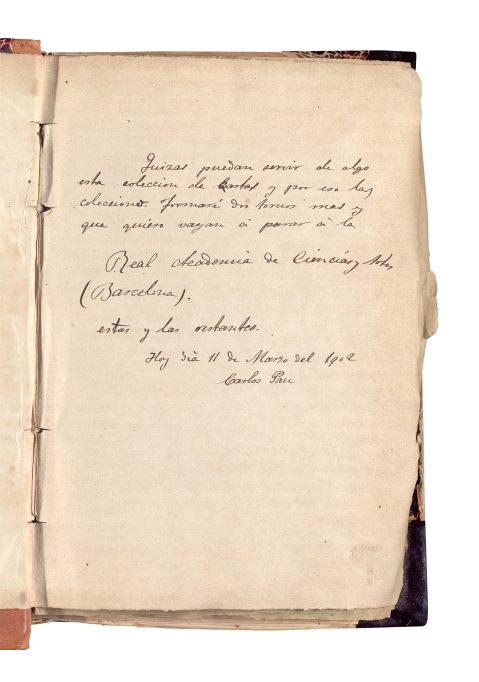 Quizas puedan servir de algo
esta coleccion de cartas y por eso las
colecciono. Formaré dos tomos mas y
que quiero vayan á parar á la
Real Academia de Ciencias y Artes
(Barcelona).
estas y las restantes.
Hoy dia 11 de Marzo del 1902
Carlos Pau